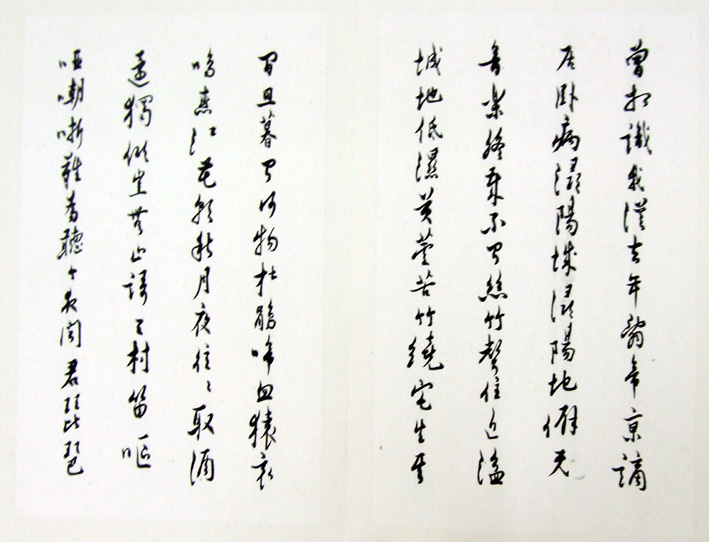 曾相識我從去年辭帝京謫
居卧病潯陽城潯陽地僻无
音樂終歲不聞絲竹聲住近湓
城地低濕黃蘆苦竹繞宅生其
間旦暮聞何物杜鵑啼血猿哀
鳴春江花朝秋月夜往〻取酒
還獨傾豈無山謌与村笛嘔
啞嘲哳難為聽今夜聞君琵琶